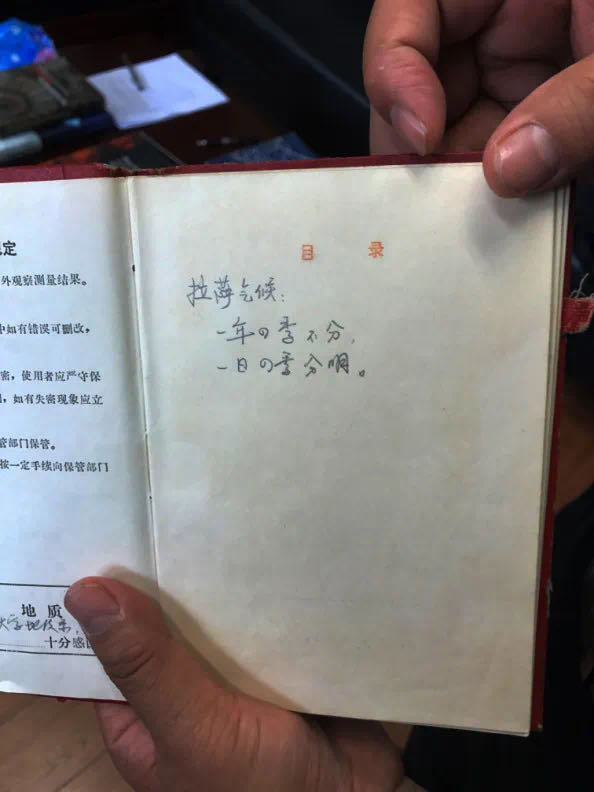 定
外观察测量结果。
中如有错误可删改，
密，使用者应严守保
，如有失密现象应立
管部门保管。
按一定手续向保管部门
地 质
大学地
十分感
目 录
拉萨气候：
一年四季不分，
一日四季分明。